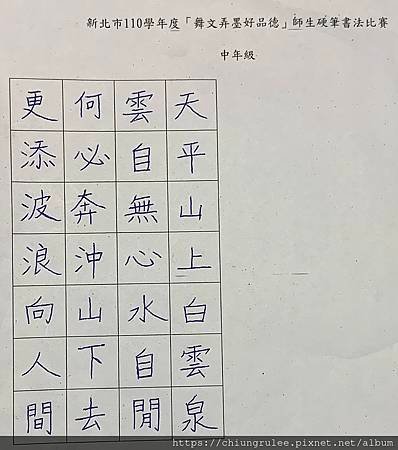 新北市110學年度「舞文弄墨好品德」師生硬筆書法比賽
中年級
天平山上白雲泉
雲自無心水自閒
何必奔沖山下去
更添波浪向人間
https://chiungrulee.pixnet.net/album